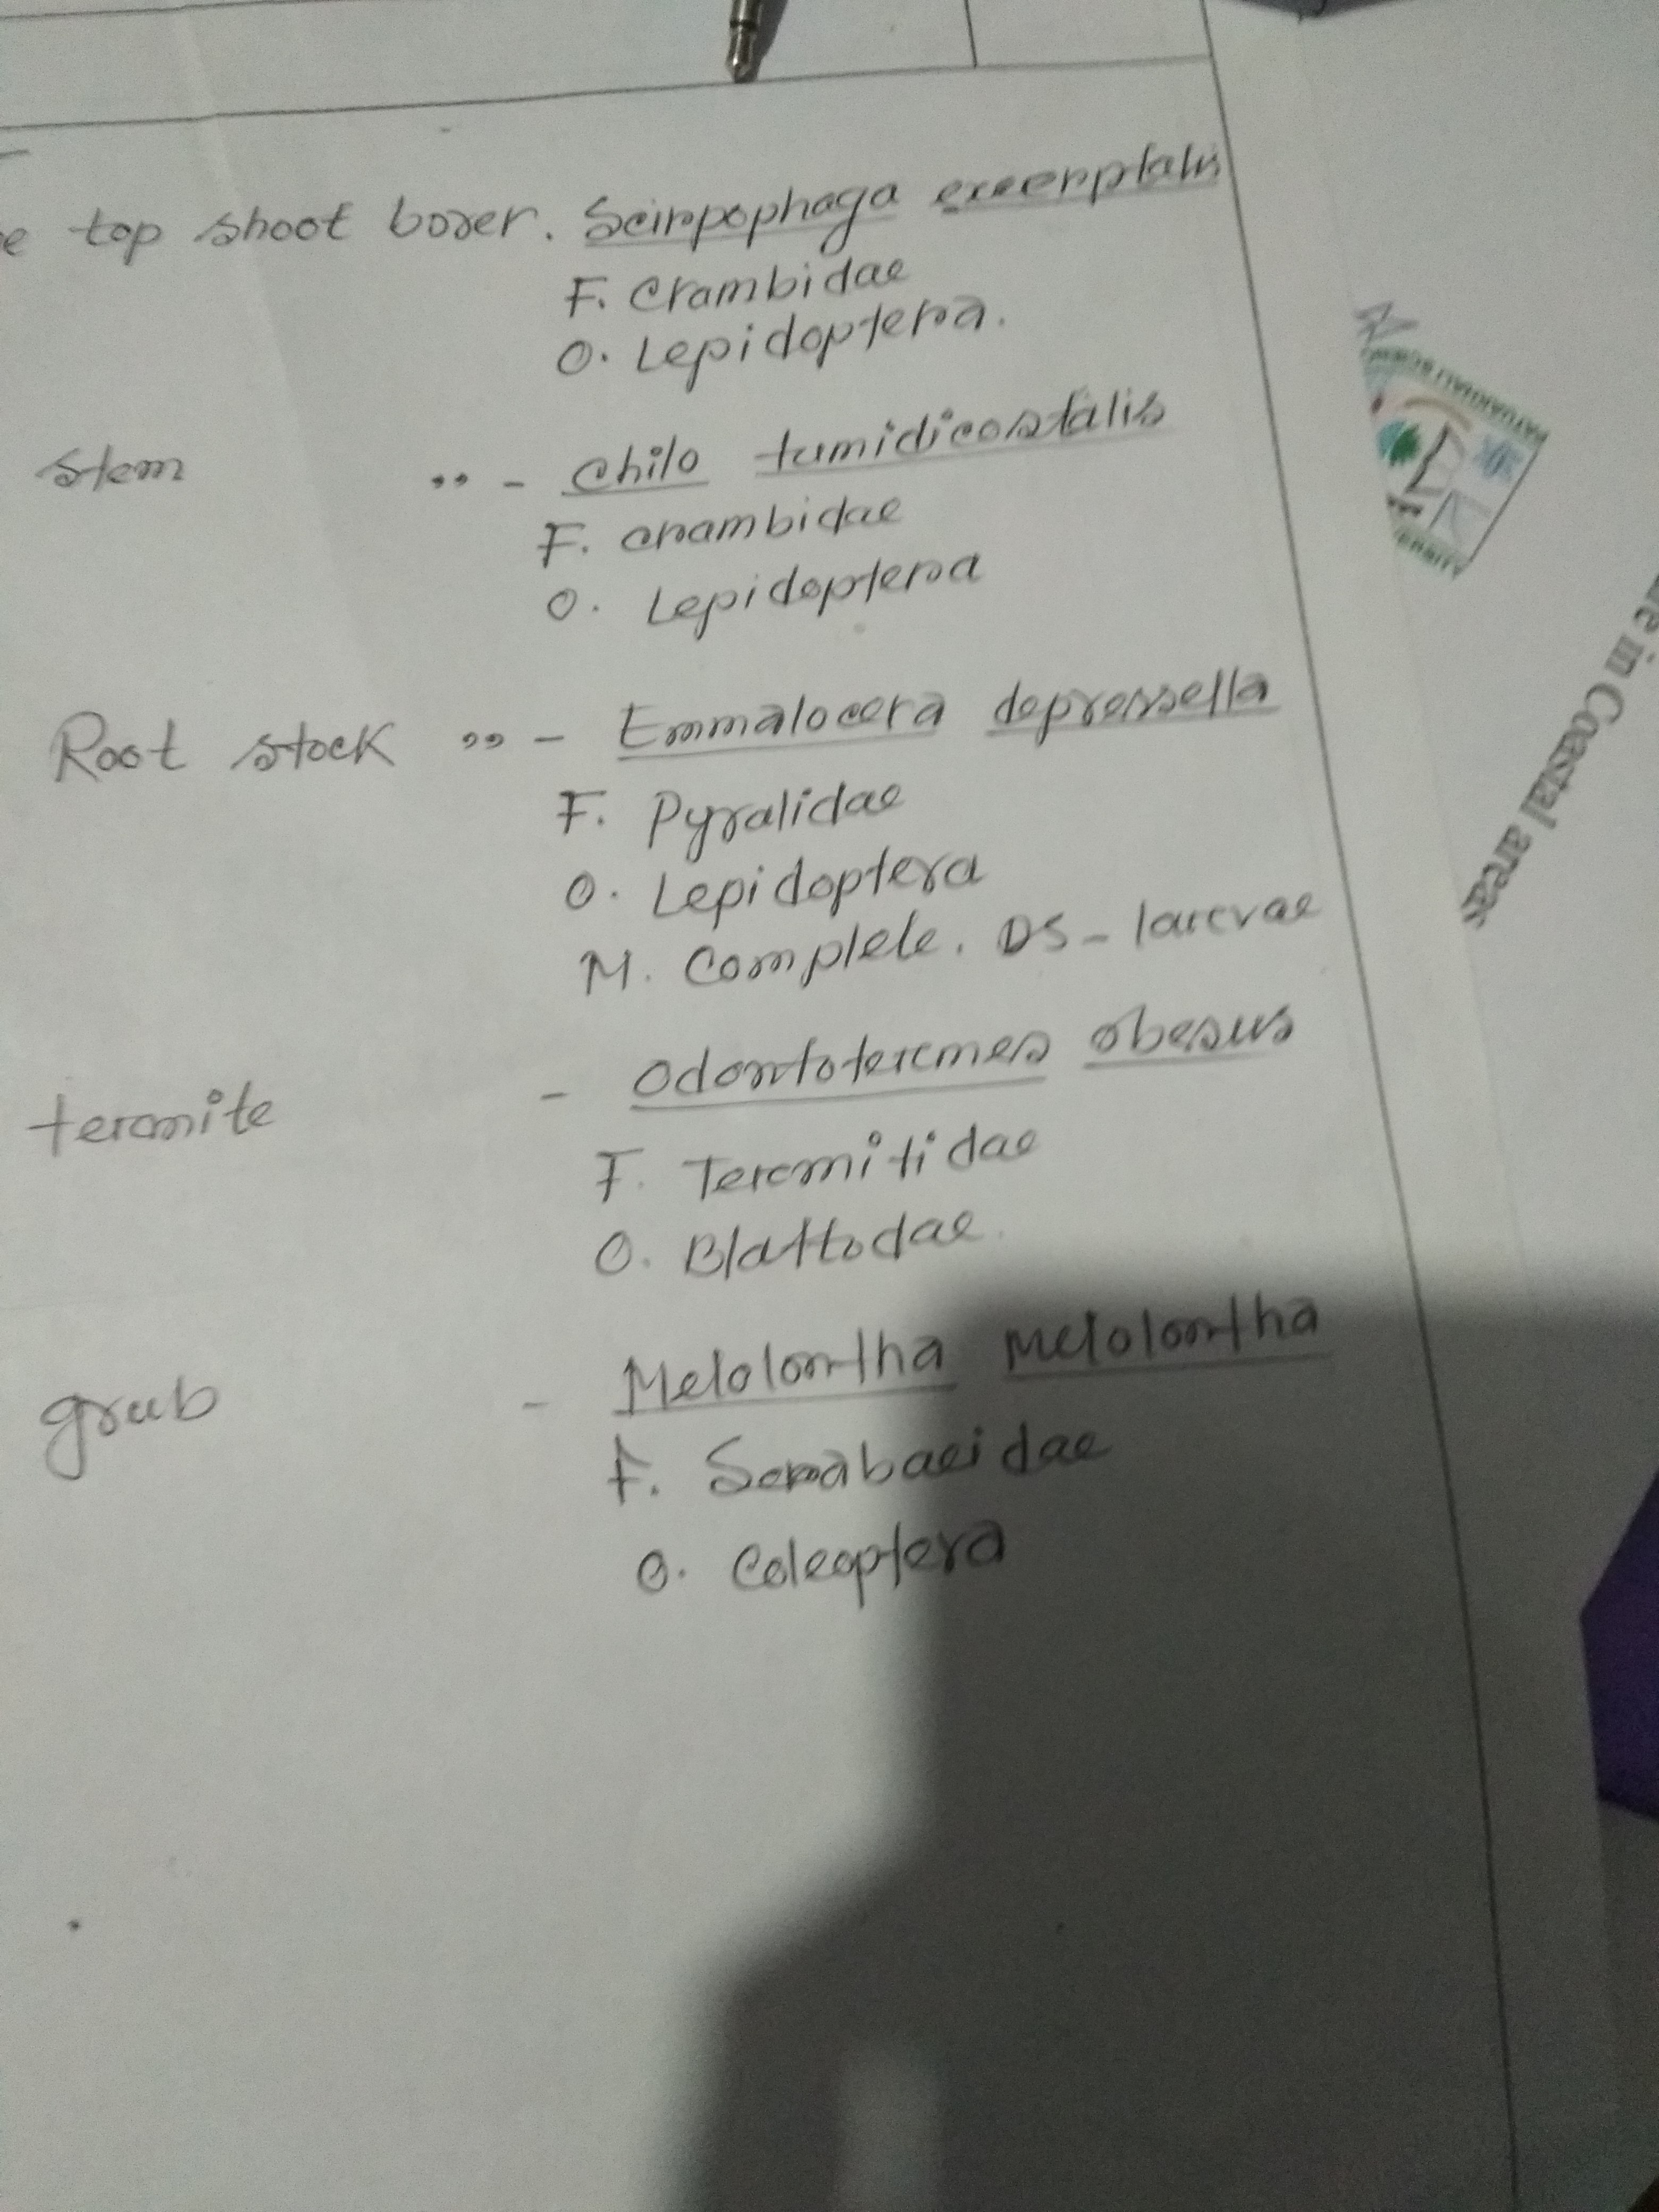 e top shoot borer. Scirpophaga excerptalis
F. Crambidae
O. Lepidoptera.
stem ,, - Chilo tumidicostalis
F. crambidae
O. Lepidoptera
Root stock ,, - Emmalocera depressella
F. Pyralidae
O. Lepidoptera
M. Complete. DS - larvae
termite - Odontotermes obesus
F. Termitidae
O. Blattodae.
grub - Melolontha Melolontha
F. Scarabaeidae
O. Coleoptera
PATUAKHALI SCIENC
e in Coastal areas